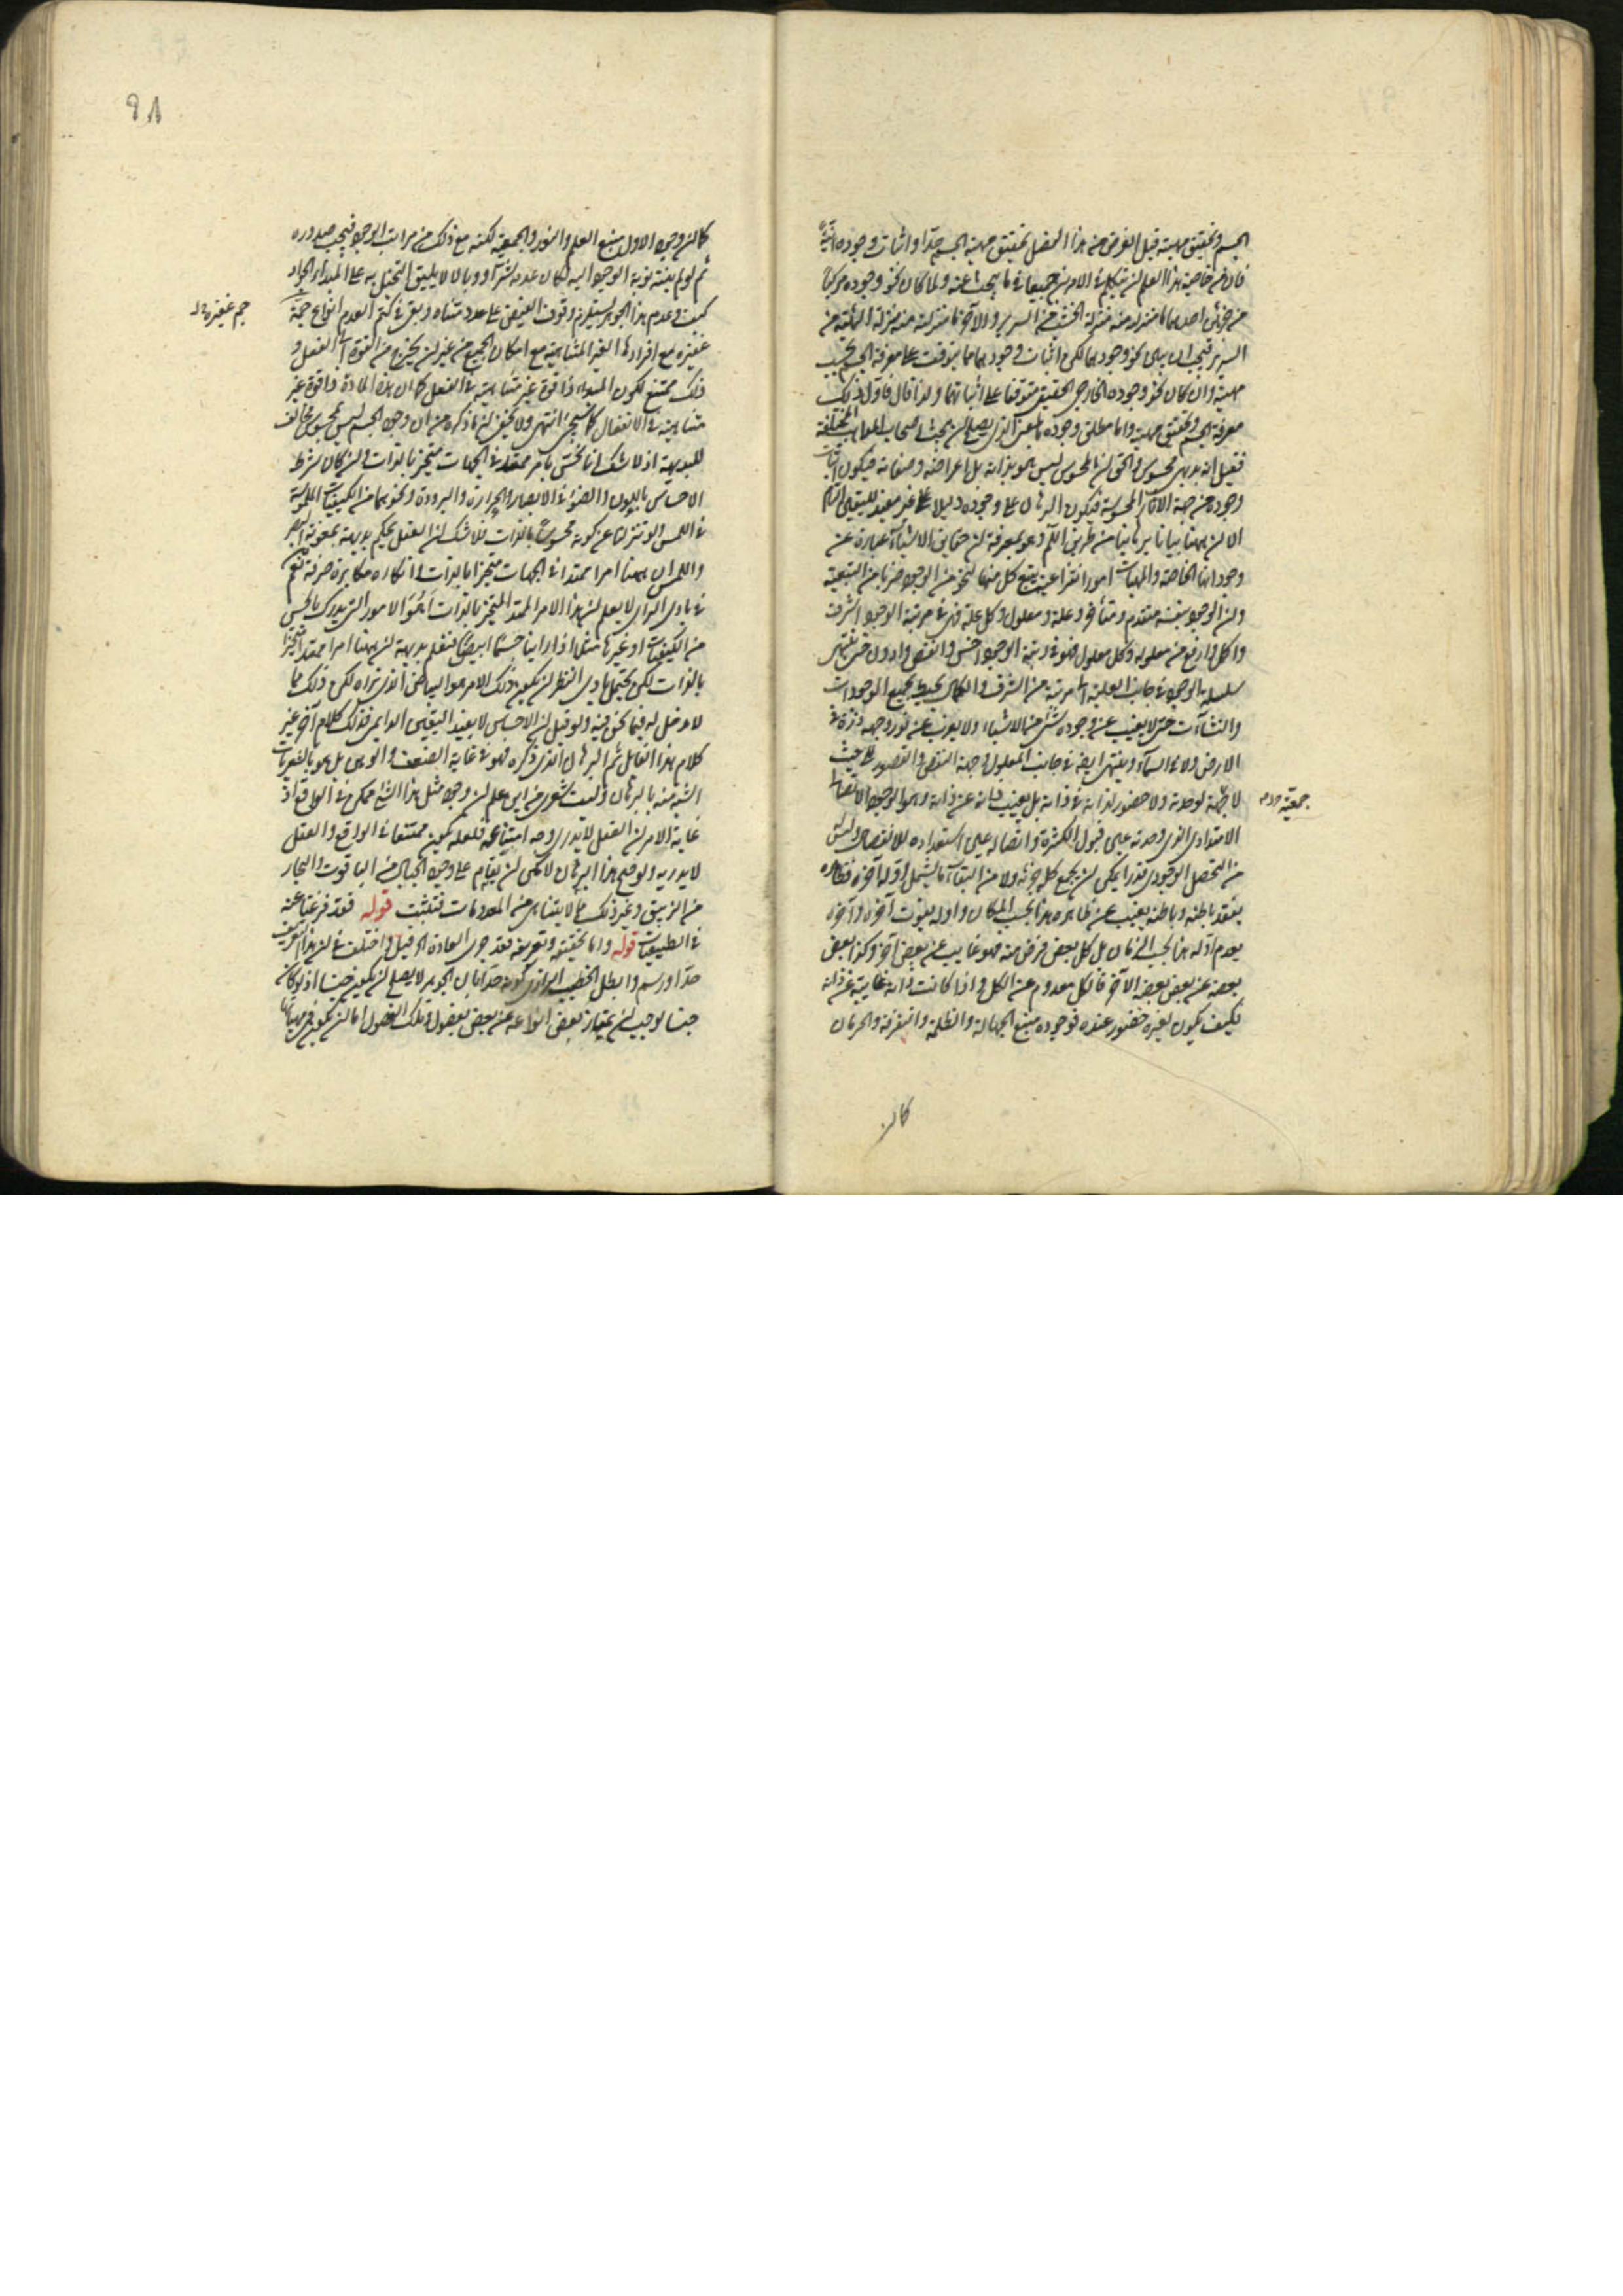 الجسم وتحقيق مهيته قيل الغرض من هذا الفصل تحقيق مهية الجسم حدا واثبات وجوده انية
فان من خاصية هذا العلم ان يتكلم في الامرين جميعا في ما يبحث عنه ولما كان نحو وجوده مركبا
من جزئين احدهما منزلته منه منزلة الخشب من السرير والآخر ما منزلته منه منزلة الهيئة من
السرير فيجب ان يبين نحو وجودهما لكن اثبات وجودهما مما يتوقف على معرفة الجسم بحسب
مهيته وان كان نحو وجوده الخارجي الحقيقي متوقفا على اثباتهما ولذا قال فاول ذلك
معرفة الجسم وتحقيق مهيته واما مطلق وجوده بالمعنى الذي يصلح لان يبحث اصحاب المذاهب المختلفة
فقيل انه بديهي محسوس والحق ان المحسوس ليس هو بذاته بل اعراضه وصفاته فيكون اثبات
وجوده من جهة الآثار المحسوسة فيكون البرهان على وجوده دليلا غير مفيد لليقين التام
الا ان ههنا بيانا برهانيا من طريق اللم وهو بمعرفة ان حقايق الاشياء عبارة عن
وجوداتها الخاصة والمهيات امور انتزاعية يتبع كل منها لنحو من الوجود ضربا من التبعية
وان الوجود بنفسه متقدم ومتأخر وعلة ومعلول وكل علة فهي في مرتبة الوجود اشرف
واكمل وارفع من معلوله وكل معلول فهو في رتبة الوجود اخس وانقص وادون حتى ينتهي
سلسلة الوجود في جانب العلية الى مرتبة من الشرف والكمال يحيط بجميع الموجودات
والنشآت حتى لا يغيب عن وجوده شيء من الاشياء ولا يعزب عن نور وجهه ذرة في
الارض ولا في السماء وينتهي ايضا في جانب المعلول وجهة النقص والقصور الى حيث
لا جهة لوحدته ولا حضور لذاته في ذاته بل يغيب ذاته عن ذاته وهو الوجود الاتصالي
جمعية
الامتدادي الذي وحدته عين قبول الكثرة واتصاله عين استعداده للانفصال وليس
من التحصل الوجودي قدرا يمكن ان يجمع كله جزئه ولا من البقاء ما يشمل اوله آخره فظاهره
يفقد باطنه وباطنه يغيب عن ظاهره هذا بحسب المكان واوله يفوت آخره وآخره
يعدم اوله هذا بحسب الزمان بل كل بعض فرض منه فهو غايب عن بعض آخر وكذا بعض
بعضه عن بعض بعضه الآخر فالكل معدوم عن الكل واذا كانت ذاته غايبة عن ذاته
فكيف يكون لغيره حضور عنده فوجوده منبع الجهالة والظلمة والتفرقة والحرمان
كما ان
٩٨
كما ان وجود الاول منبع العلم والنور والجمعية لكنه مع ذلك من مراتب الوجود فيجب صدوره
ثم لو لم ينته نوبة الوجود اليه لكان عدمه شرا ووبالا لا يليق البخل به على المبدأ الجواد
كيف وعدم هذا الجوهر يستلزم وقوف الفيض على عدد متناه وبقي في كتم العدم انواع جمة
جم غفيرة
غفيرة مع افرادها الغير المتناهية مع امكان الجميع من غير ان يخرج من القوة الى الفعل و
ذلك ممتنع لكون المبدء ذا قوة غير متناهية في الفعل كما ان هذه المادة ذا قوة غير
متناهية في الانفعال كما سيجئ انتهى ولا يخفى ان ما ذكره من ان وجود الجسم ليس بمحسوس مخالف
للبديهة اذ لا شك انا نحس بامر ممتد في الجهات متحيز بالذات وان كان بشرط
الاحساس باللون والضوء في الابصار والحرارة والبرودة ونحوهما من الكيفيات الملموسة
في اللمس ولو تنزلنا عن كونه محسوسا بالذات فلا شك ان العقل يحكم بديهة بمعونة البصر
واللمس ان ههنا امرا ممتدا في الجهات متحيزا بالذات وانكاره مكابرة صرفة نعم
في بادي الراي لا يعلم ان هذا الامر الممتد المتحيز بالذات أهو الامور التي يدرك بالحس
من الكيفيات او غيرها مثلا اذا راينا جسما ابيض فنعلم بديهة ان ههنا امرا ممتدا متحيزا
بالذات لكن يحتمل بادي النظر ان يكون ذلك الامر هو البياض الذي نراه لكن ذلك مما
لا دخل له فيما نحن فيه ولو قيل ان الاحساس لا يفيد اليقين الدايمي فذلك كلام آخر غير
كلام هذا القايل ثم البرهان الذي ذكره فهو في غاية الضعف والوهن بل هو بالشعريات
اشبه منه بالبرهان وليت شعري من اين علم ان وجود مثل هذا الشئ ممكن في الواقع اذ
غاية الامر ان العقل لا يدري وجه امتناعه فلعله يكون ممتنعا في الواقع والعقل
لا يدريه ولو صح هذا البرهان لامكن ان يقام على وجود الجبال من الياقوت والبحار
من الزيبق وغير ذلك مما لا يتناهى من المعدومات فتثبت قوله فقد فرغنا عنه
في الطبيعيات قوله واما تحقيقه وتعريفه فقد جرى العادة الخ قيل واختلف في ان هذا التعريف
حد او رسم وابطل الخطيب الرازي كونه حدا بان الجوهر لا يصلح ان يكون جنسا اذ لو كان
جنسا لوجب ان يمتاز بعض انواعه عن بعض بفصول وتلك الفصول اما ان يكون في مهياتها